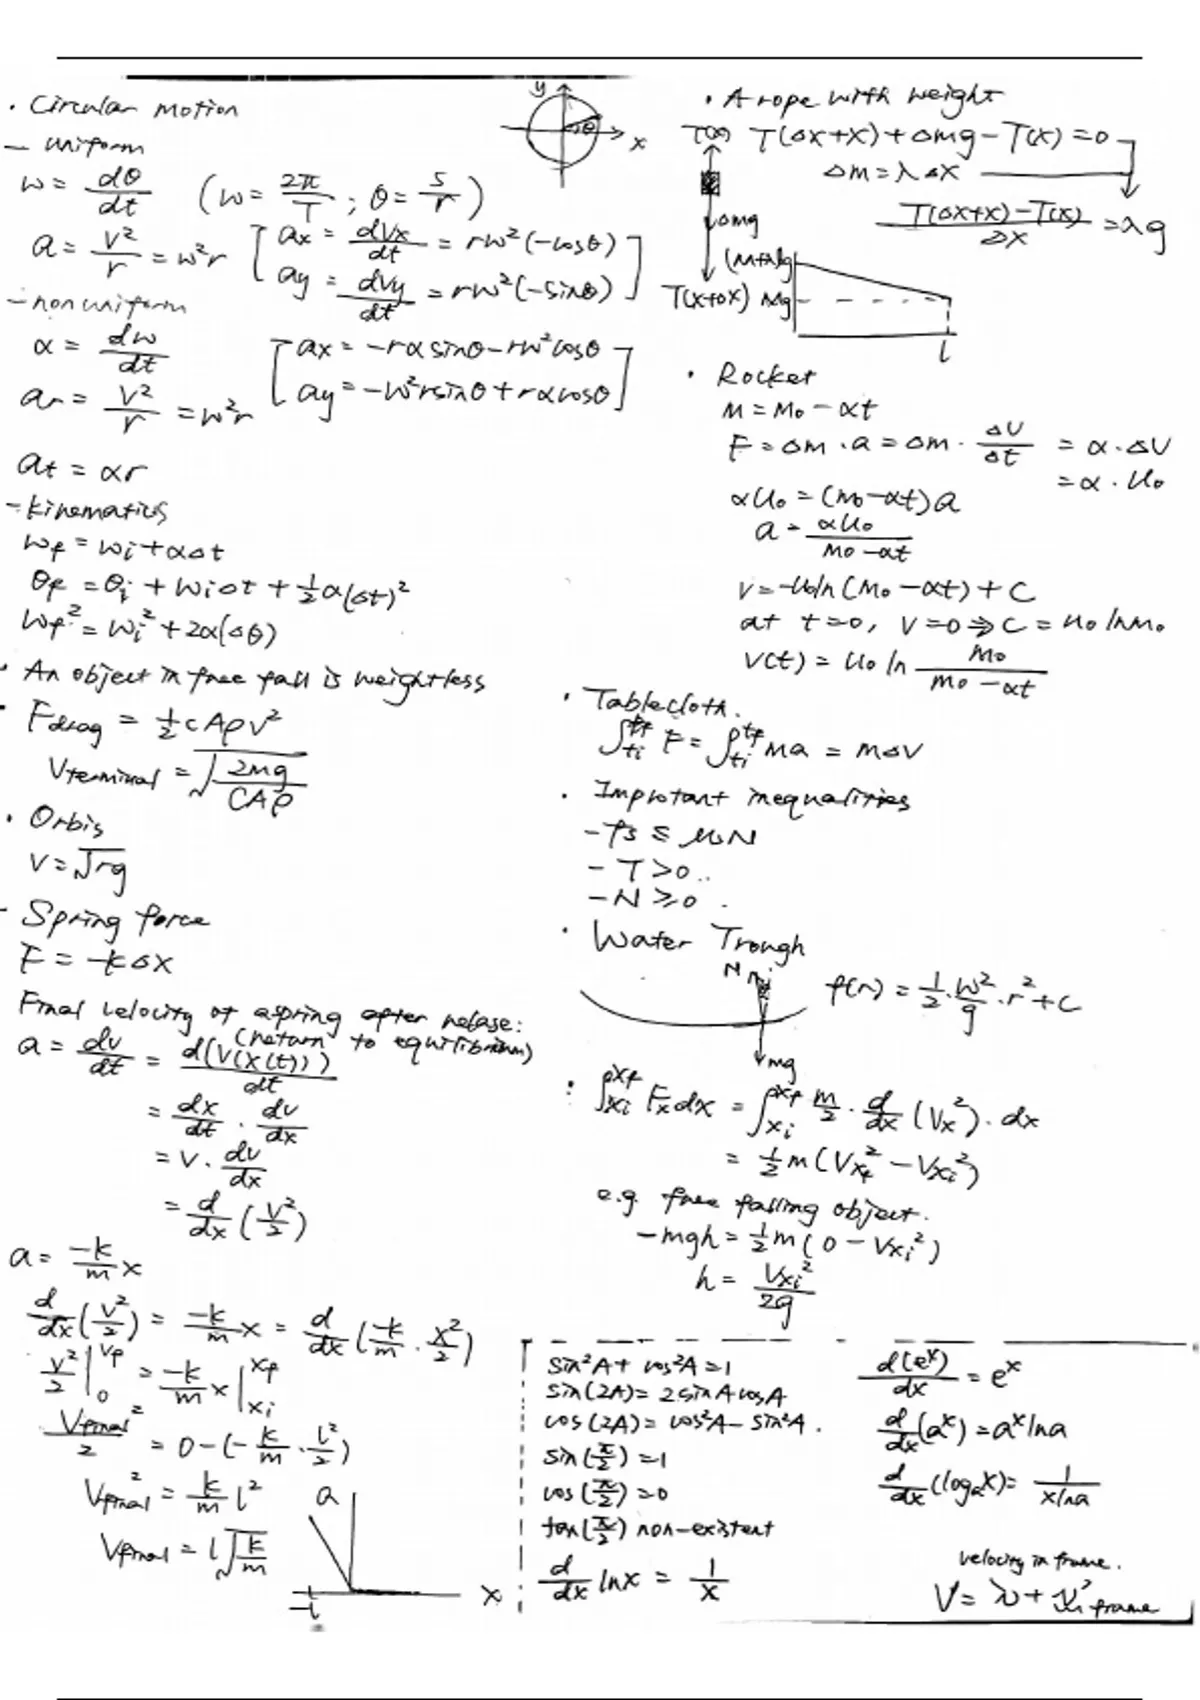 · Circular motion
- uniform
ω = dθ/dt (ω = 2π/T ; θ = s/r)
a = v²/r = ω²r [ax = dVx/dt = rω²(-cosθ)
ay = dVy/dt = rω²(-sinθ)]
- non uniform
α = dω/dt [ax = -rα sinθ - rω²cosθ
ar = v²/r = ω²r ay = -ω²r sinθ + rα cosθ]
at = αr
- kinematics
ωf = ωi + αΔt
θf = θi + ωiΔt + ½α(Δt)²
ωf² = ωi² + 2α(Δθ)
· An object in free fall is weightless
· Fdrag = ½cAρv²
Vterminal = √(2mg/CAρ)
· Orbis
V = √rg
- Spring force
F = -kΔx
Final velocity of a spring after relase:
(return to equilibrium)
a = dv/dt = d(V(x(t)))/dt
= dx/dt · dv/dx
= v · dv/dx
= d/dx (v²/2)
a = -k/m x
d/dx(v²/2) = -k/m x = d/dx(-k/m · x²/2)
v²/2 |₀^vf = -k/m x |xi^xf
Vfinal²/2 = 0-(-k/m · l²/2)
Vfinal² = k/m l²
Vfinal = l√(k/m)
a
x
-l
y
θ
x
· A rope with weight
T(x) T(Δx+x) + Δmg - T(x) = 0
Δm = λΔx
Δmg
T(Δx+x) - T(x)/Δx = λg
T(x+Δx) Mg
l
· Rocket
M = M₀ - αt
F = Δm · a = Δm · ΔU/Δt = α·ΔU
= α · U₀
αU₀ = (m₀-αt)a
a = αU₀/M₀-αt
V = -U₀ln(M₀-αt) + C
at t=0, V=0 ⇒ C = U₀ lnM₀
V(t) = U₀ ln M₀/m₀-αt
· Tablecloth.
∫ti^tf F = ∫ti^tf ma = mΔV
· Improtant inequalities
- fs ≤ μsN
- T>0 ..
- N≥0 .
· Water Trough
N
f(r) = ½·ω²/g·r² + C
mg
· ∫xi^xf Fx dx = ∫xi^xf m/2 · d/dx (Vx²)·dx
= ½m(Vxf² - Vxi²)
e.g. free falling object.
-mgh = ½m(0-Vxi²)
h = Vxi²/2g
sin²A + cos²A = 1
sin(2A) = 2sinAcosA
cos(2A) = cos²A - sin²A.
sin(π/2) = 1
cos(π/2) = 0
tan(π/2) non-existent
d/dx lnx = 1/x
d(eˣ)/dx = eˣ
d/dx(aˣ) = aˣlna
d/dx(logₐx) = 1/xlna
velocity in frame.